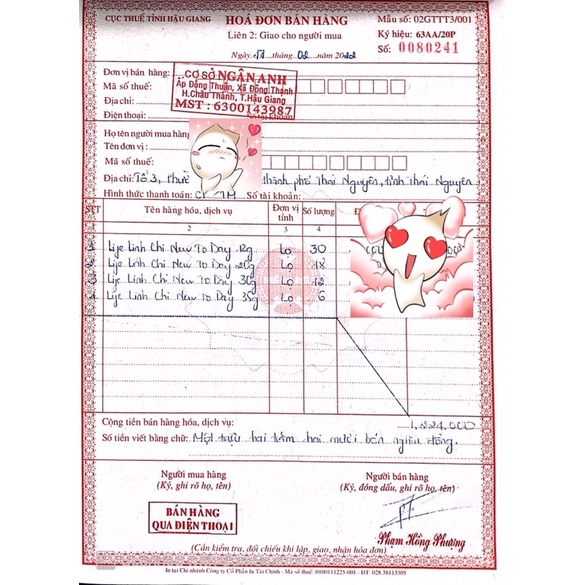 CỤC THUẾ TỈNH HẬU GIANG
HOÁ ĐƠN BÁN HÀNG
Mẫu số: 02GTTT3/001
Liên 2: Giao cho người mua
Ký hiệu: 63AA/20P
Số: 0080241
Ngày tháng 02 năm
Đơn vị bán hàng:
CƠ SỞ NGÂN ANH
Mã số thuế:
Ấp Đông Thuận, Xã Đông Thạnh
Địa chỉ:
H.Châu Thành, T.Hậu Giang
Điện thoại
MST : 6300143987
Họ tên người mua hàng
Tên đơn vị
Mã số thuế:
Địa chỉ: Tổ 3, thành phố Thái Nguyên, tỉnh Thái Nguyên
Hình thức thanh toán: Số tài khoản:
STT Tên hàng hóa, dịch vụ Đơn vị tính Số lượng
1 2 3 4
1 Lije Linh Chi New To Day 12g Lọ 30
2 Lije Linh Chi New To Day 20g Lọ 18
3 Lije Linh Chi New To Day 30g Lọ 12
4 Lije Linh Chi New To Day 35g Lọ 6
Cộng tiền bán hàng hóa, dịch vụ: 1,224,000
Số tiền viết bằng chữ: Một triệu hai trăm hai mươi bốn nghìn đồng.
Người mua hàng
Người bán hàng
(Ký, ghi rõ họ, tên)
(Ký, đóng dấu, ghi rõ họ, tên)
BÁN HÀNG
QUA ĐIỆN THOẠI
Phạm Hồng Phượng
(Cần kiểm tra, đối chiếu khi lập, giao, nhận hóa đơn)
In tại Chi nhánh Công ty Cổ Phần In Tài Chính - Mã số thuế: 0100111225-001 - ĐT: 028.38113305